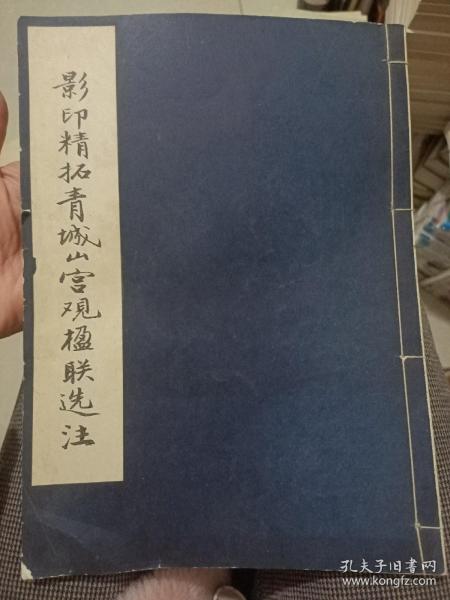 影印精拓青城山宫观楹联选注
孔夫子旧书网
www.kongfz.com